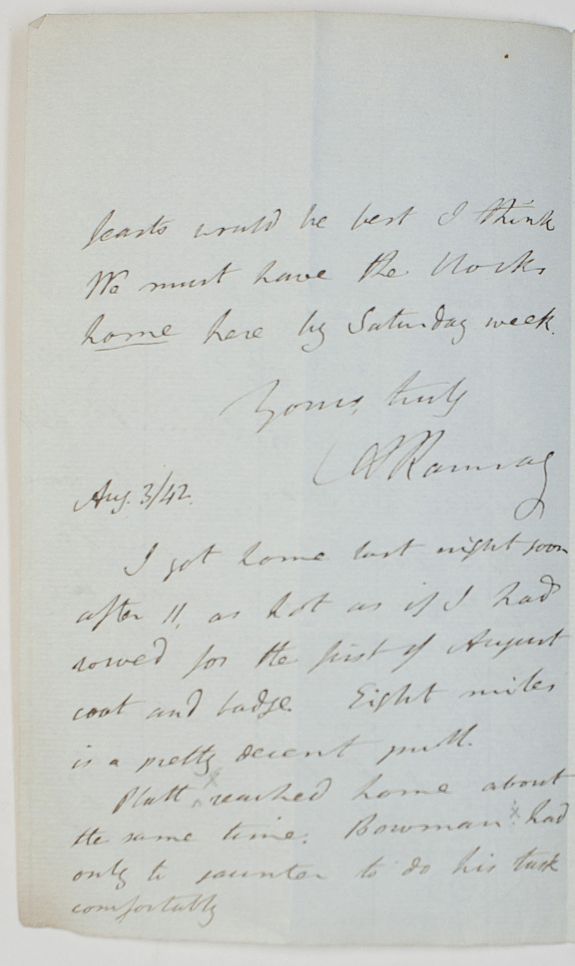 hearts would be best I think
We must have the blocks
home here by Saturday week.
Yours truly
A Ramsay
Aug. 3/42.
I got home last night soon
after 11, as hot as if I had
rowed for the first of August
coat and badge. Eight miles
is a pretty decent pull.
Platt x reached home about
the same time. Bowman x had
only to saunter to do his task
comfortably